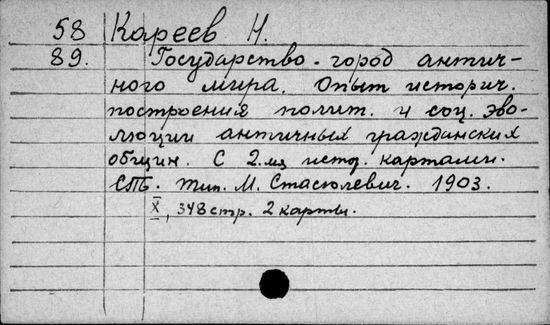 58 Кареев Н.
89. Государство-город антич-
ного мира. Опыт историч.
построения полит. и соц. эво-
люции античных гражданских
общин. С 2-мя истор. картами.
СПБ. Тип. М. Стасюлевич. 1903.
X, 348 стр. 2 карты.